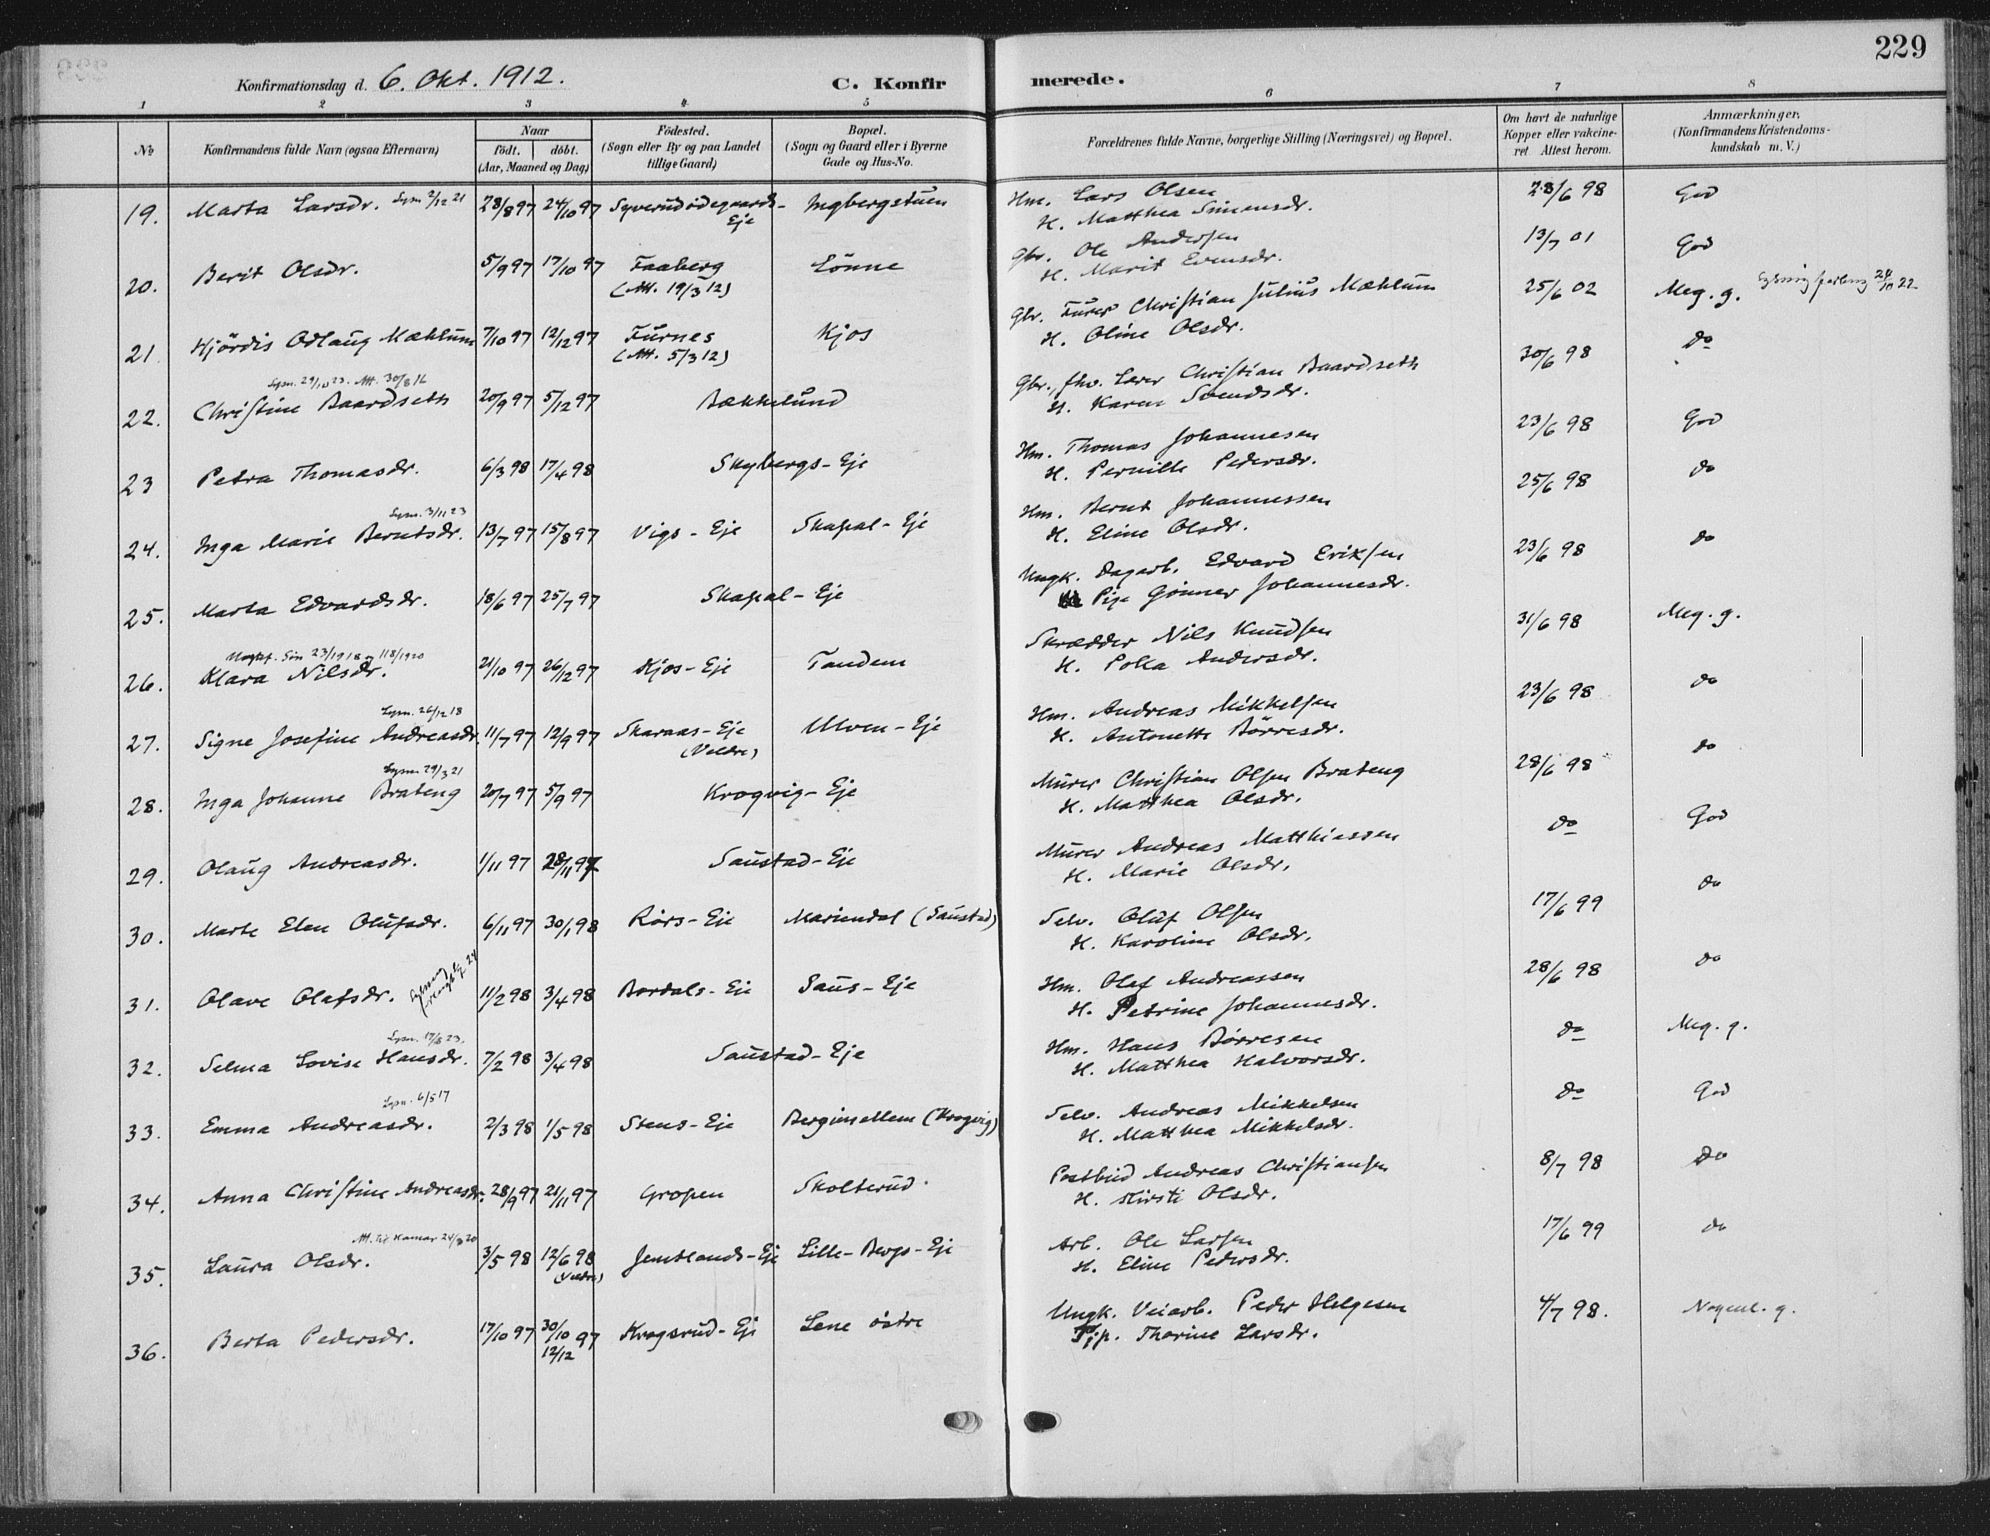 229
Konfirmationsdag d. 6. Okt. 1912.
C. Konfirmerede.
1 2 3 4 5 6 7 8
No
Konfirmandens fulde Navn (ogsaa Efternavn)
Naar
födt. döbt.
(Aar, Maaned og Dag)
Födested.
(Sogn eller By og paa Landet
tillige Gaard)
Bopæl.
(Sogn og Gaard eller i Byerne
Gade og Hus-No.
Forældrenes fulde Navne, borgerlige Stilling (Næringsvei) og Bopæl.
Om havt de naturlige
Kopper eller vakcine-
ret Attest herom.
Anmærkninger.
(Konfirmandens Kristendoms-
kundskab m. V.)
19. Marta Larsdr. Lysn 2/12 21 28/8 97 24/10 97 Syverudödegaards- Eje Ingbergstuen Hm. Lars Olsen 28/6 98 God
H. Matthea Simensdr.
20. Berit Olsdr. 5/9 97 17/10 97 Faaberg Lönne Gbr. Ole Andersen 13/7 01 God
(Att. 19/3 12) H. Marit Evensdr.
21. Hjördis Odlaug Mæhlum 7/10 97 12/12 97 Furnes Kjos Gbr. Furer Christian Julius Mæhlum 25/6 02 Meg. g. 24/10 22
(Att. 5/3 12) H. Oline Olsdr.
Lysn. 29/10 23. Att. 30/8 16
22. Christine Baardseth 20/9 97 5/12 97 Bækkelund Gbr., fhv. Lærer Christian Baardseth 30/6 98 do
H. Karen Svendsdr.
23 Petra Thomasdr. 6/3 98 17/4 98 Skybergs-Eje Hm. Thomas Johannesen 23/6 98 God
H. Pernille Pedersdr.
Lysn. 3/11 23
24. Inga Marie Berntsdr. 13/7 97 15/8 97 Vigs-Eje Skapal-Eje Hm. Bernt Johannessen 25/6 98 do
H. Eline Olsdr.
25. Marta Edvardsdr. 18/6 97 25/7 97 Skapal-Eje Ungk. Dagarb. Edvard Eriksen 23/6 98 do
Pige Gönner Johannesdr.
26. Klara Nilsdr. 21/10 97 26/12 97 Kjos-Eje Tandem Skrædder Nils Knudsen 31/6 98 Meg. g.
H. Polla Andersdr.
Lysn. 26/12 18
27. Signe Josefine Andreasdr. 11/7 97 12/9 97 Skaraas-Eje Ulven-Eje Hm. Andreas Mikkelsen 23/6 98 do
(Veldre) H. Antonette Börresdr.
Lysn. 29/3 21
28. Inga Johanne Brateng 20/7 97 5/9 97 Krogvig-Eje Murer Christian Olsen Brateng 28/6 98 do
H. Matthea Olsdr.
29. Olaug Andreasdr. 1/11 97 28/11 97 Saustad-Eje Murer Andreas Matthiassen do God
H. Marie Olsdr.
30. Marte Elen Olufsdr. 6/11 97 30/1 98 Rörs-Eje Mariendal (Saustad) Selv. Oluf Olsen 17/6 99 do
H. Karoline Olsdr.
31. Olave Olafsdr. 11/2 98 3/4 98 Bordals-Eje Saus-Eje Hm. Olaf Andreassen 28/6 98 do
H. Petrine Johannesdr.
Lysn. 17/8 23.
32. Selma Lovise Hansdr. 7/2 98 3/4 98 Saustad-Eje Hm. Hans Börresen do Meg. g.
H. Matthea Halvorsdr.
Lysn. 6/5 17
33. Emma Andreasdr. 2/3 98 1/5 98 Stens-Eje Bergimellem (Krogvig) Selv. Andreas Mikkelsen do God
H. Matthea Mikkelsdr.
34. Anna Christine Andreasdr. 28/9 97 21/11 97 Gropen Skolterud. Postbud Andreas Christiansen 8/7 98 do
H. Kirsti Olsdr.
Att. til Hamar 24/3 20
35. Laura Olsdr. 3/5 98 12/6 98 Jemtlands-Eje Lille-Bergs-Eje Arb. Ole Larsen 17/6 99 do
(Veldre) H. Eline Pedersdr.
36. Berta Pedersdr. 17/10 97 30/10 97 Krogsrud-Eje Lene östre Ungk. Veiarb. Peder Helgesen 4/7 98. Nogenl. g.
12/12 Pip. Thorine Larsdr.